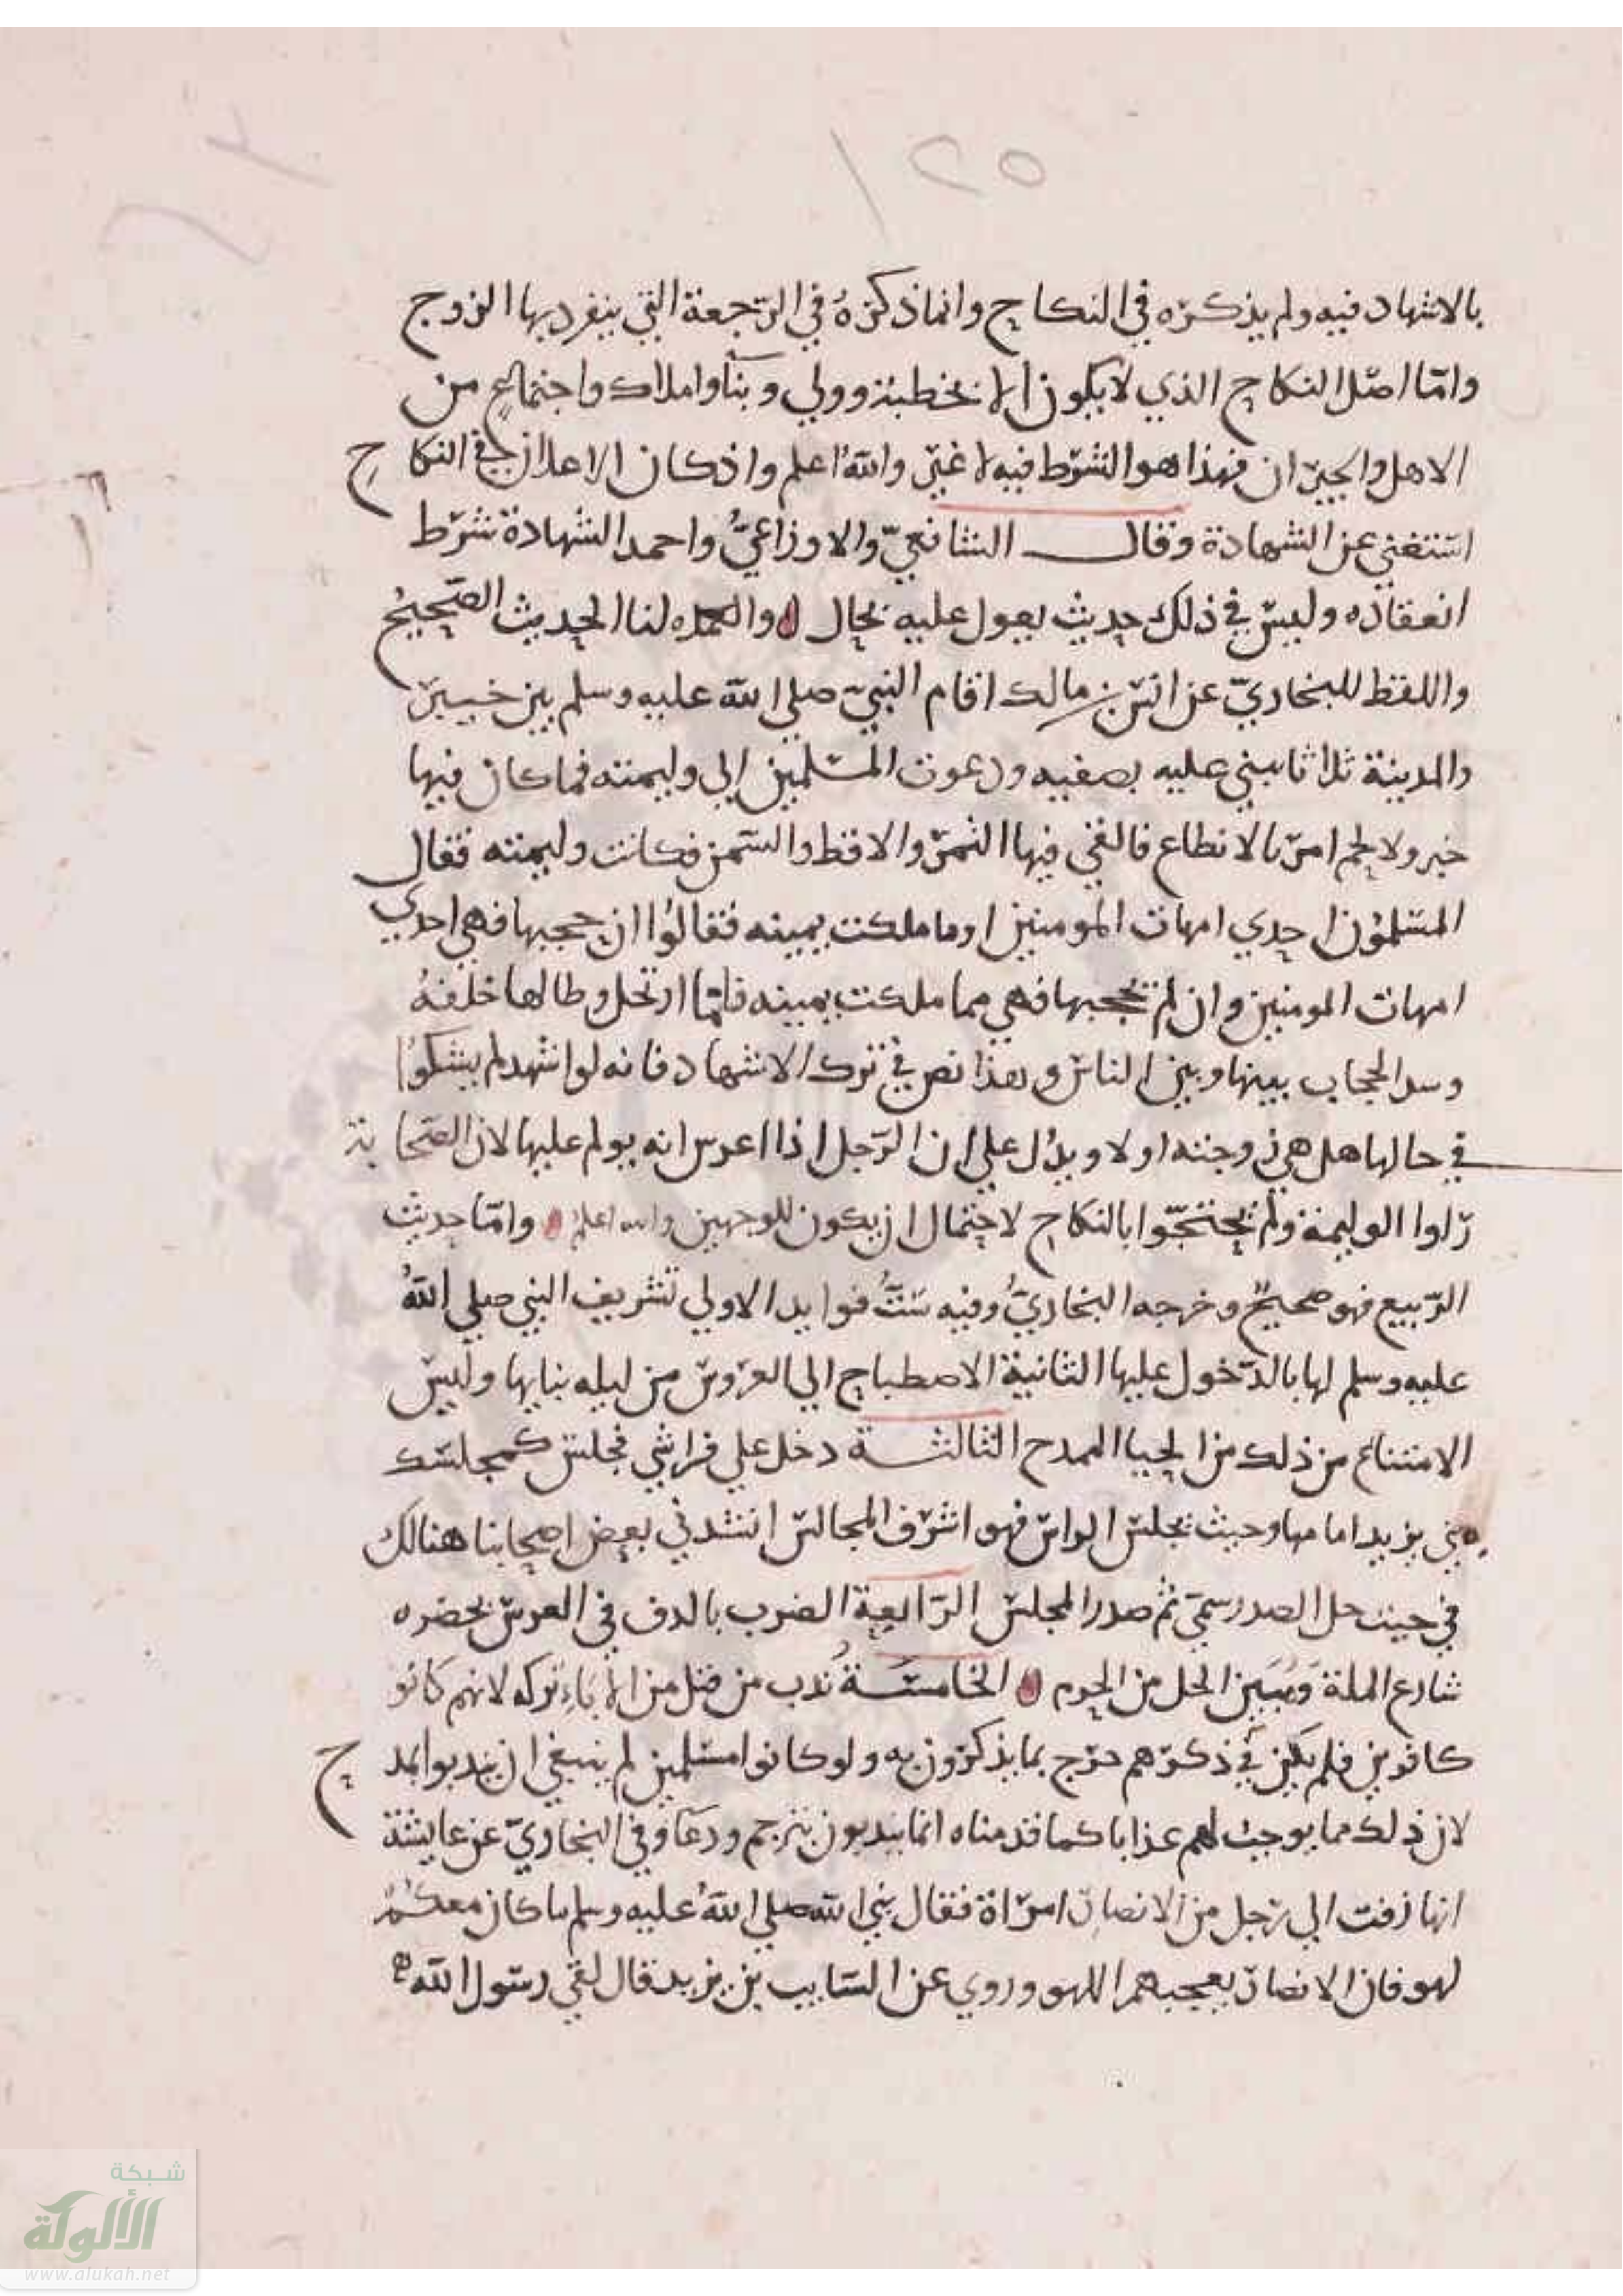 ١٢٥
بالاشهاد فيه ولم يذكره في النكاح وانما ذكره في الرجعة التي ينفرد بها الزوج
وامّا اصل النكاح الذي لا يكون الا بخطبة وولي وبنآ واملاك واجتماع من
الاهل والجيران فهذا هو الشرط فيه لا غير والله اعلم واذ كان الاعلان في النكاح
استغني عن الشهادة وقال الشافعيّ والاوزاعيُّ واحمد الشهادة شرط
انعقاده وليس في ذلك حديث يعول عليه بحال والعمده لنا الحديث الصحيحُ
واللفظ للبخاريّ عن انس بن مالك اقام النبيّ صلي الله عليه وسلم بين خيبر
والمدينة ثلاثا يبني عليه بصفيه ودعوت المسلمين إلي وليمته فما كان فيها
خبز ولا لحم امر بالانطاع فالقي فيها التمر والاقط والسمن فكانت وليمته فقال
المسلمون احدي امهات المومنين او ما ملكت يمينه فقالوا ان حجبها فهي احدي
امهات المومنين وان لم يحجبها فهي مما ملكت يمينه فلمّا ارتحل وطا لها خلفهُ
وسد الحجاب بينها وبين الناس وهذا نص في ترك الاشهاد فانه لو اشهد لم يشكوا
في حالها هل هي زوجته او لا ويدُل علي ان الرجل اذا اعرس انه يولم عليها لان الصحابة
راوا الوليمة ولم يحتجّوا بالنكاح لاحتمال ان يكون للوجهين والله اعلم وامّا حديث
الرّبيع فهو صحيحٌ وخرجه البخاريُّ وفيه ستُّ فوايد الاولي تشريف النبي صلي اللهُ
عليه وسلم لها بالدّخول عليها الثانية الاصطباح الي العروس من ليله بنايها وليس
الامتناع من ذلك من الحيا الممدح الثالثة دخل علي فراشي فجلس كمجلسك
مني يريد امامها وحيث يجلس الراس فهو اشرف المجالس انشدني بعض اصحابنا هنالك
في حيث حل الصدر سمي ثم صدر المجلس الرّابعة الضرب بالدف في العرس بحضره
شارع الملة وَمُبَين الحل من الحرم الخامسَة نُدب من قتل من الابآءِ تركه لانهم كانو
كافرين فلم يكن في ذكرهم حرج بما يذكرون به ولو كانوا مسلمين لم ينبغي ان يندبوا بمدح
لان ذلك مما يوجب لهم عذابا كما قدمناه انما يندبون بترحم ودعآ وفي البخاريّ عن عايشة
انها زفت الي رجل من الانصار امراة فقال نبي الله صلي اللهُ عليه وسلم ما كان معكمْ
لهو فان الانصار يعجبهم اللهو وروي عن السايب بن يزيد قال لقي رسول الله
شبكة
الألوكة
www.alukah.net